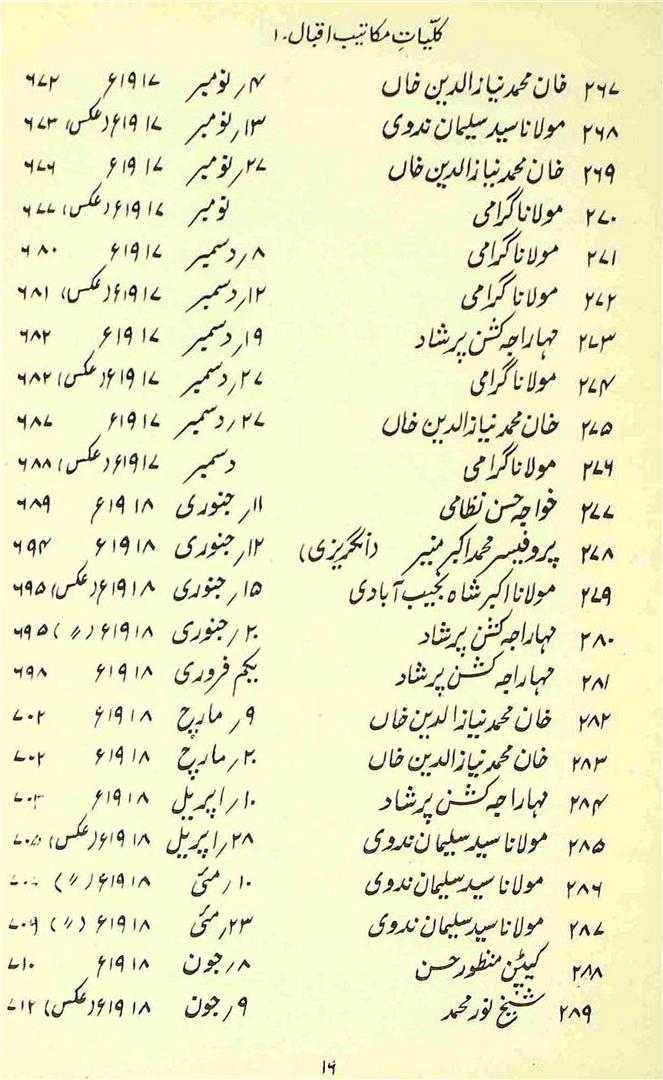 کلیّاتِ مکاتیب اقبال ۔۱
۲۶۷ خان محمد نیاز الدین خاں ۴؍ نومبر ۱۹۱۷ء ۶۷۲
۲۶۸ مولانا سید سلیمان ندوی ۱۳؍ نومبر ۱۹۱۷ء (عکس) ۶۷۳
۲۶۹ خان محمد نیاز الدین خاں ۲۷؍ نومبر ۱۹۱۷ء ۶۷۶
۲۷۰ مولانا گرامی نومبر ۱۹۱۷ء (عکس) ۶۷۷
۲۷۱ مولانا گرامی ۸؍ دسمبر ۱۹۱۷ء ۶۸۰
۲۷۲ مولانا گرامی ۱۲؍ دسمبر ۱۹۱۷ء (عکس) ۶۸۱
۲۷۳ مہاراجہ کشن پرشاد ۱۹؍ دسمبر ۱۹۱۷ء ۶۸۲
۲۷۴ مولانا گرامی ۲۷؍ دسمبر ۱۹۱۷ء (عکس) ۶۸۲
۲۷۵ خان محمد نیاز الدین خاں ۲۷؍ دسمبر ۱۹۱۷ء ۶۸۷
۲۷۶ مولانا گرامی دسمبر ۱۹۱۷ء (عکس) ۶۸۸
۲۷۷ خواجہ حسن نظامی ۱۱؍ جنوری ۱۹۱۸ء ۶۸۹
۲۷۸ پروفیسر محمد اکبر منیر (انگریزی) ۱۲؍ جنوری ۱۹۱۸ء ۶۹۴
۲۷۹ مولانا اکبر شاہ نجیب آبادی ۱۵؍ جنوری ۱۹۱۸ء (عکس) ۶۹۵
۲۸۰ مہاراجہ کشن پرشاد ۲۰؍ جنوری ۱۹۱۸ء (〃) ۶۹۵
۲۸۱ مہاراجہ کشن پرشاد یکم فروری ۱۹۱۸ء ۶۹۸
۲۸۲ خان محمد نیاز الدین خاں ۹؍ مارچ ۱۹۱۸ء ۷۰۲
۲۸۳ خان محمد نیاز الدین خاں ۲۰؍ مارچ ۱۹۱۸ء ۷۰۲
۲۸۴ مہاراجہ کشن پرشاد ۱۰؍ اپریل ۱۹۱۸ء ۷۰۳
۲۸۵ مولانا سید سلیمان ندوی ۲۸؍ اپریل ۱۹۱۸ء (عکس) ۷۰۵
۲۸۶ مولانا سید سلیمان ندوی ۱۰؍ مئی ۱۹۱۸ء (〃)
۲۸۷ مولانا سید سلیمان ندوی ۲۳؍ مئی ۱۹۱۸ء (〃) ۷۰۹
۲۸۸ کیپٹن منظور حسن ۸؍ جون ۱۹۱۸ء ۷۱۰
۲۸۹ شیخ نور محمد ۹؍ جون ۱۹۱۸ء (عکس) ۷۱۲
۱۶